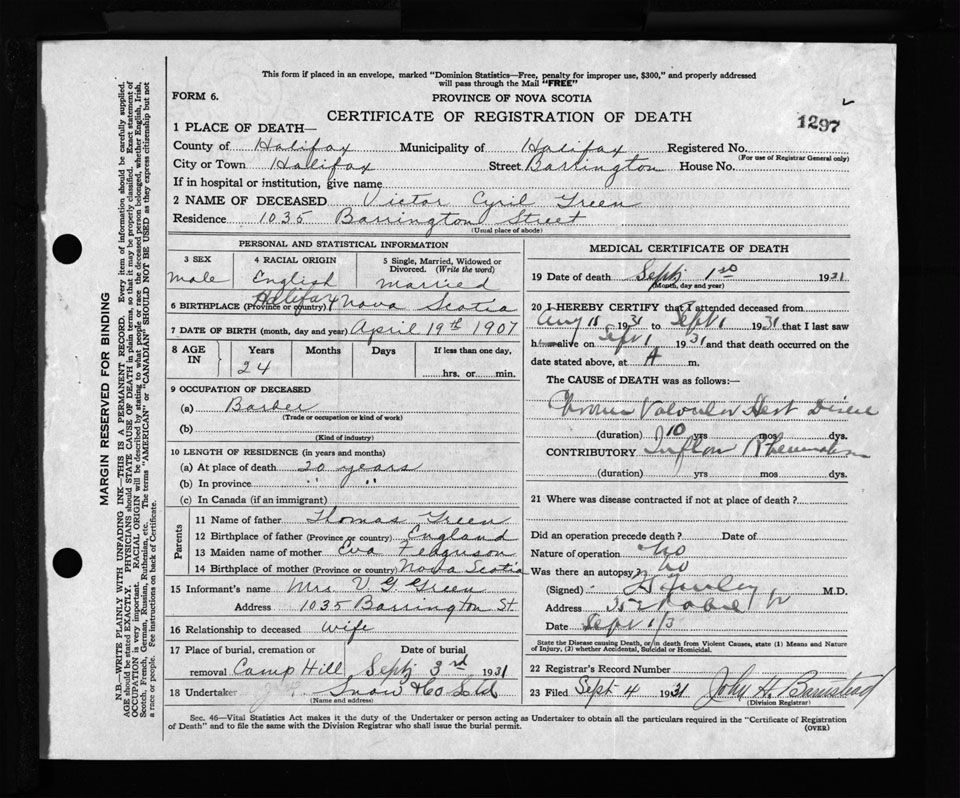 This form if placed in an envelope, marked "Dominion Statistics—Free, penalty for improper use, $300," and properly addressed
will pass through the Mail "FREE"
FORM 6.
PROVINCE OF NOVA SCOTIA
CERTIFICATE OF REGISTRATION OF DEATH
1297
1 PLACE OF DEATH—
County of Halifax Municipality of Halifax Registered No.
(For use of Registrar General only)
City or Town Halifax Street Barrington House No.
If in hospital or institution, give name
2 NAME OF DECEASED Victor Cyril Green
Residence 1035 Barrington Street
(Usual place of abode)
PERSONAL AND STATISTICAL INFORMATION
3 SEX
male
4 RACIAL ORIGIN
English
5 Single, Married, Widowed or
Divorced. (Write the word)
married
6 BIRTHPLACE (Province or country) Halifax Nova Scotia
7 DATE OF BIRTH (month, day and year) April 19th 1907
8 AGE IN
Years Months Days If less than one day,
24
hrs. or min.
9 OCCUPATION OF DECEASED
(a) Barber
(Trade or occupation or kind of work)
(b)
(Kind of industry)
10 LENGTH OF RESIDENCE (in years and months)
(a) At place of death 20 years
(b) In province " "
(c) In Canada (if an immigrant)
Parents
11 Name of father Thomas Green
12 Birthplace of father (Province or country) England
13 Maiden name of mother Eva Ferguson
14 Birthplace of mother (Province or country) Nova Scotia
15 Informant's name Mrs V G. Green
Address 1035 Barrington St.
16 Relationship to deceased wife
17 Place of burial, cremation or Date of burial
removal Camp Hill Sept 3rd 1931
18 Undertaker Snow & Co Ltd
(Name and address)
MEDICAL CERTIFICATE OF DEATH
19 Date of death Sept 1st 1931
(Month, day and year)
20 I HEREBY CERTIFY that I attended deceased from
Aug 18 1931 to Sept 1 1931 that I last saw
h alive on Sept 1 1931 and that death occurred on the
date stated above, at A m.
The CAUSE OF DEATH was as follows:—
Chronic Valvular Hert Diseae
(duration) 10 yrs mos dys.
CONTRIBUTORY Inflam Rheumatism
(duration) yrs mos dys.
21 Where was disease contracted if not at place of death?
Did an operation precede death? Date of
Nature of operation No
Was there an autopsy? No
(Signed) M.D.
Address 352
Date Sept 1/3
State the Disease causing Death, or in death from Violent Causes, state (1) Means and Nature
of Injury, (2) whether Accidental, Suicidal or Homicidal.
22 Registrar's Record Number
23 Filed Sept 4 1931 John H. Barnstead
(Division Registrar)
Sec. 46—Vital Statistics Act makes it the duty of the Undertaker or person acting as Undertaker to obtain all the particulars required in the "Certificate of Registration
of Death" and to file the same with the Division Registrar who shall issue the burial permit.
(OVER)
MARGIN RESERVED FOR BINDING
N.B.—WRITE PLAINLY WITH UNFADING INK—THIS IS A PERMANENT RECORD. Every item of information should be carefully supplied.
AGE should be stated EXACTLY. PHYSICIANS should STATE CAUSE OF DEATH in plain terms, so that it may be properly classified. Exact statement of
OCCUPATION is very important. RACIAL ORIGIN will be described by stating to what people or race the deceased person belonged, whether English, Irish,
Scotch, French, German, Russian, Ruthenian, etc. The terms "AMERICAN" or "CANADIAN" SHOULD NOT BE USED as they express citizenship but not
a race or people. See instructions on back of Certificate.